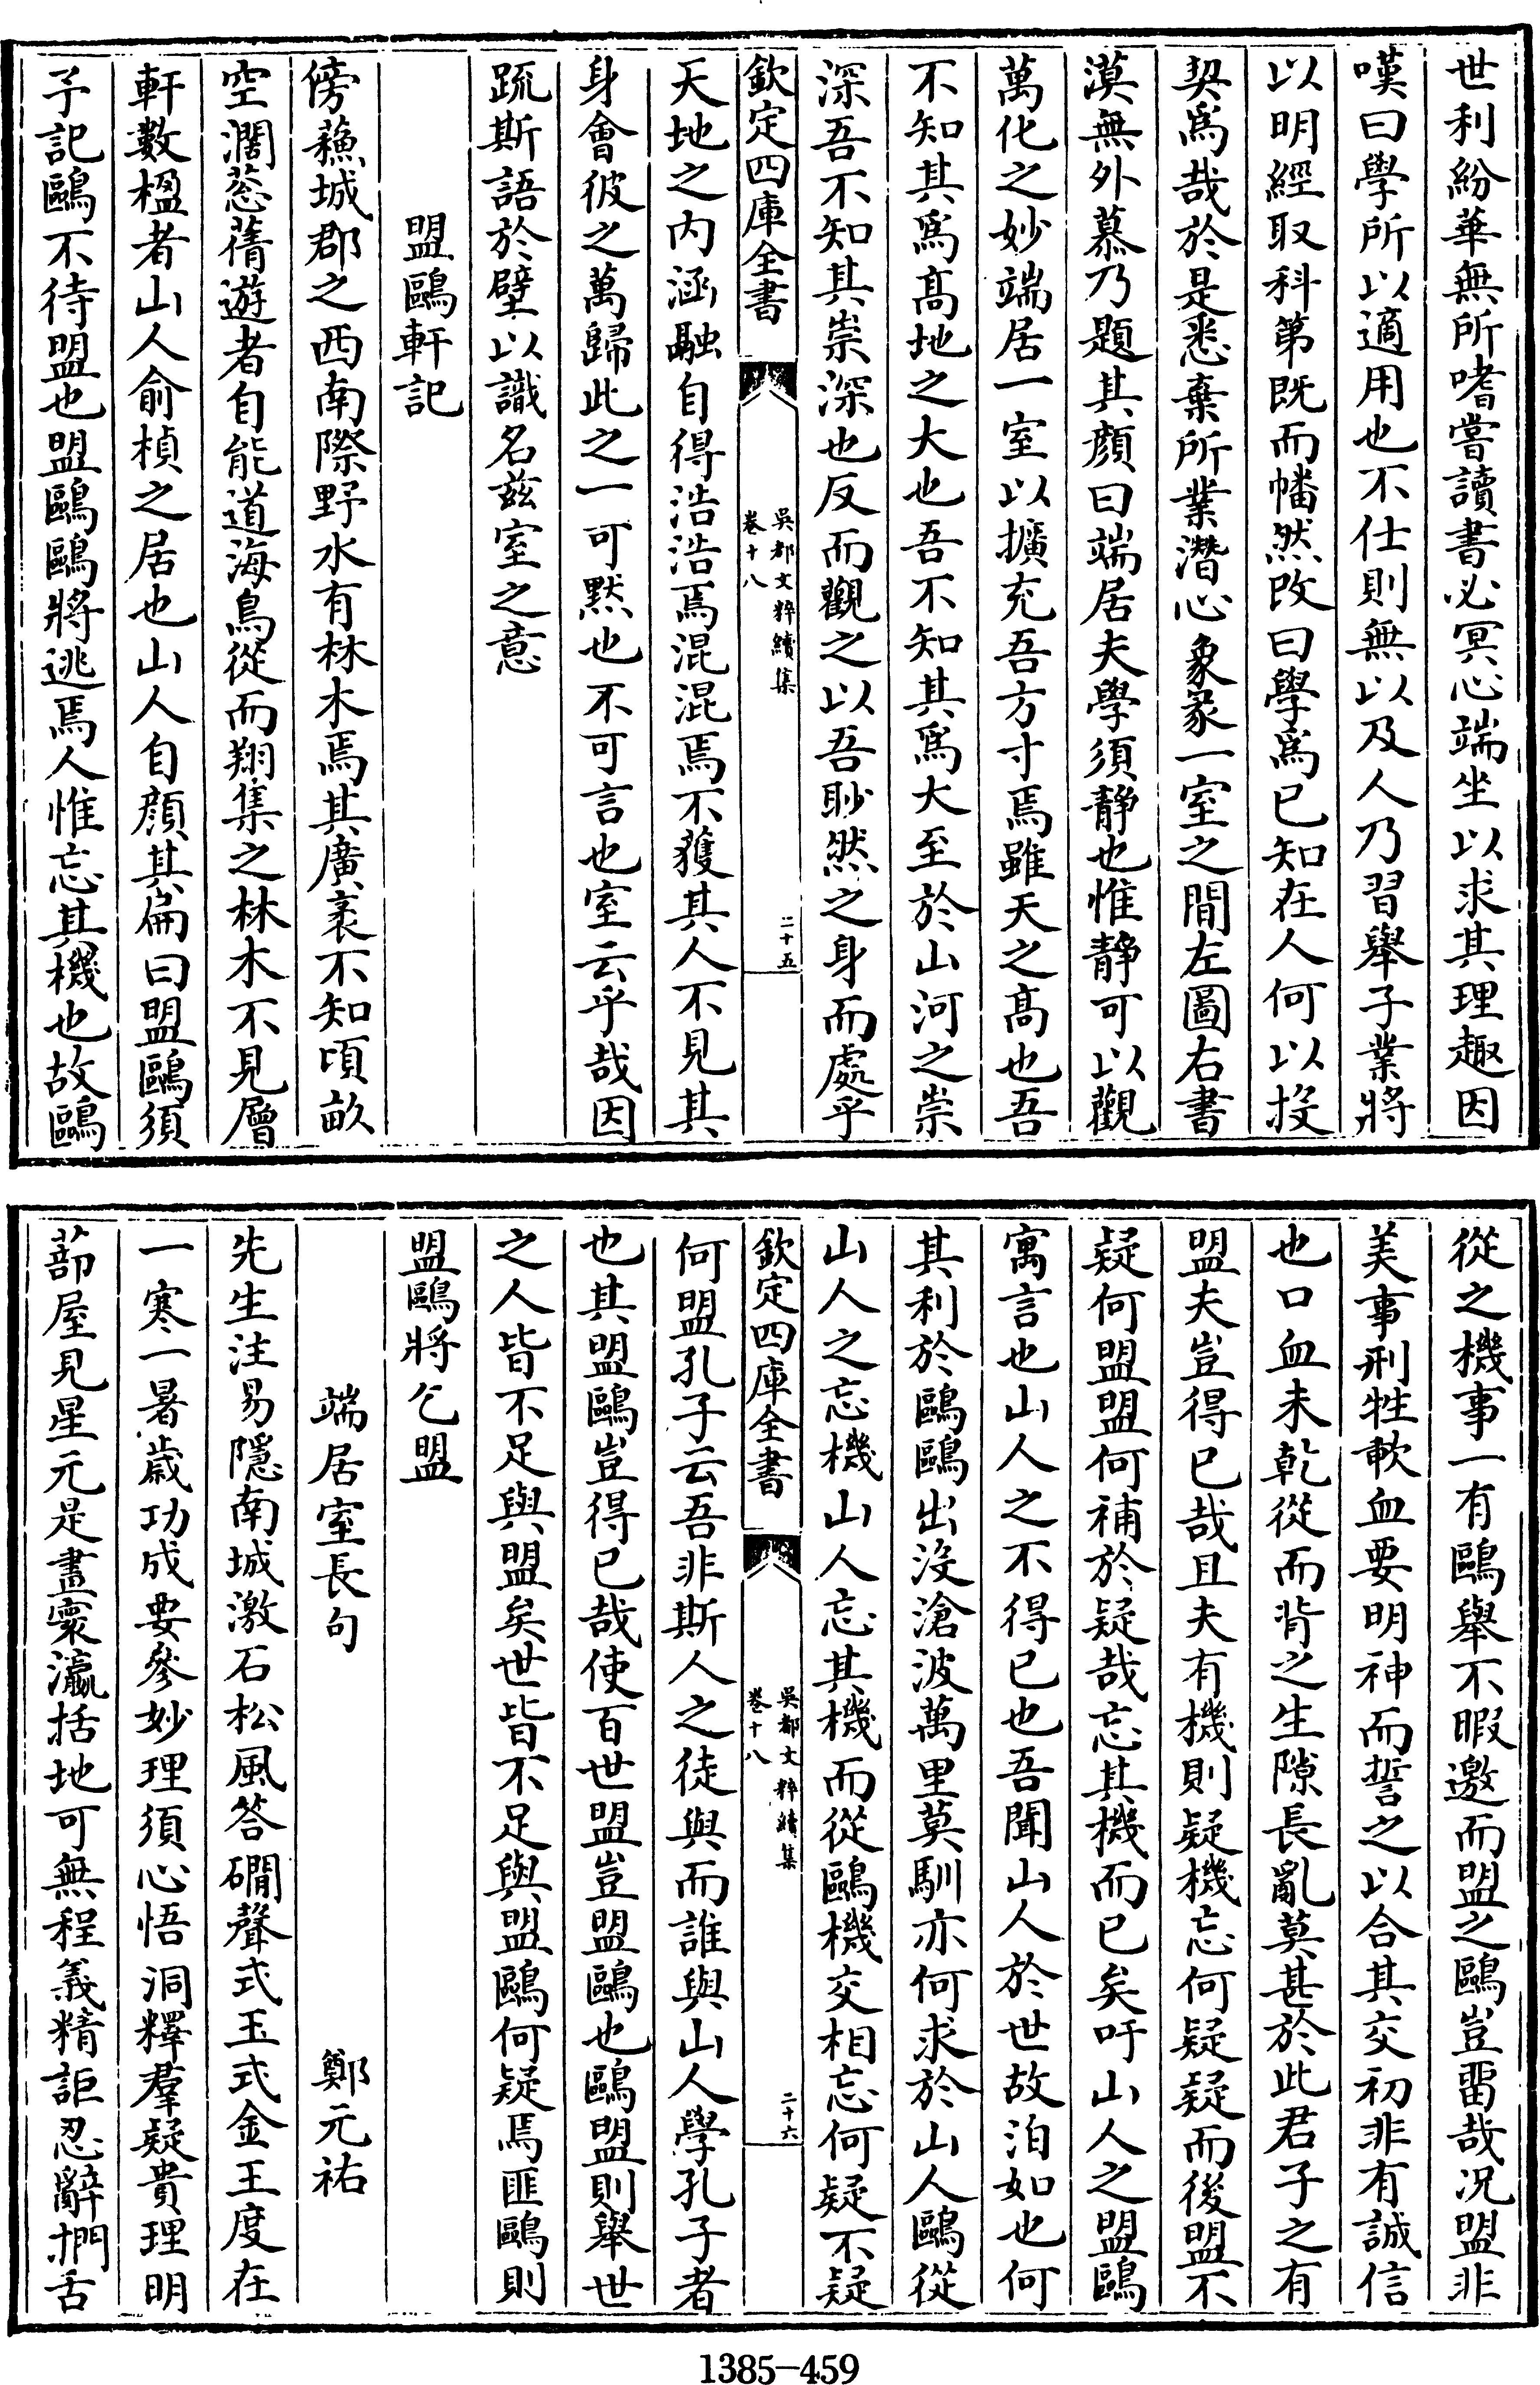 世利紛華無所嗜嘗讀書必冥心端坐以求其理趣因
嘆曰學所以適用也不仕則無以及人乃習舉子業將
以明經取科第既而幡然改曰學爲已知在人何以投
契爲哉於是悉棄所業潛心象彖一室之間左圖右書
漠無外慕乃題其顔曰端居夫學須靜也惟靜可以觀
萬化之妙端居一室以擴充吾方寸焉雖天之髙也吾
不知其爲髙地之大也吾不知其爲大至於山河之崇
深吾不知其崇深也反而觀之以吾眇然之身而處乎
欽定四庫全書
吳都文粹續集
卷十八
二十五
天地之内涵融自得浩浩焉混混焉不獲其人不見其
身會彼之萬歸此之一可默也不可言也室云乎哉因
疏斯語於壁以識名兹室之意
盟鷗軒記
傍蘓城郡之西南際野水有林木焉其廣袤不知頃畝
空濶葱蒨遊者自能道海鳥從而翔集之林木不見層
軒數楹者山人俞楨之居也山人自顔其扁曰盟鷗須
子記鷗不待盟也盟鷗鷗將逃焉人惟忘其機也故鷗
從之機事一有鷗舉不暇邀而盟之鷗豈留哉况盟非
美事刑牲軟血要明神而誓之以合其交初非有誠信
也口血未乾從而背之生隙長亂莫甚於此君子之有
盟夫豈得已哉且夫有機則疑機忘何疑疑而後盟不
疑何盟盟何補於疑哉忘其機而已矣吁山人之盟鷗
寓言也山人之不得已也吾聞山人於世故泊如也何
其利於鷗鷗出没滄波萬里莫馴亦何求於山人鷗從
山人之忘機山人忘其機而從鷗機交相忘何疑不疑
欽定四庫全書
吳都文粹續集
卷十八
二十六
何盟孔子云吾非斯人之徒與而誰與山人學孔子者
也其盟鷗豈得已哉使百世盟豈盟鷗也鷗盟則舉世
之人皆不足與盟矣世皆不足與盟鷗何疑焉匪鷗則
盟鷗將乞盟
端居室長句　鄭元祐
先生注易隱南城激石松風答磵聲式玉式金王度在
一寒一暑歲功成要參妙理須心悟洞釋羣疑貴理明
蔀屋見星元是晝寰瀛括地可無程義精詎忍辭捫舌
1385-459